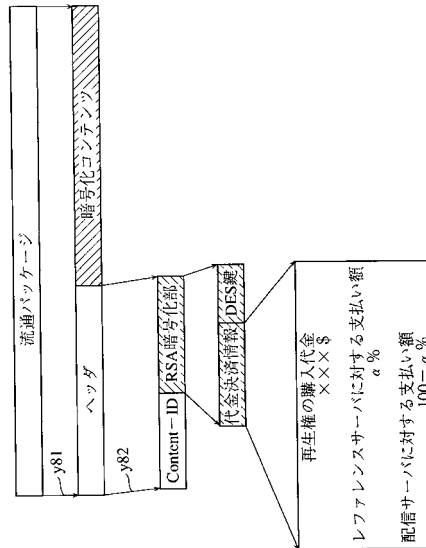 流通パッケージ
y81
ヘッダ
暗号化コンテンツ
y82
Content-ID
RSA暗号化部
代金決済情報
DES鍵
再生権の購入代金
×××$
レファレンスサーバに対する支払い額
α%
配信サーバに対する支払い額
100-α%